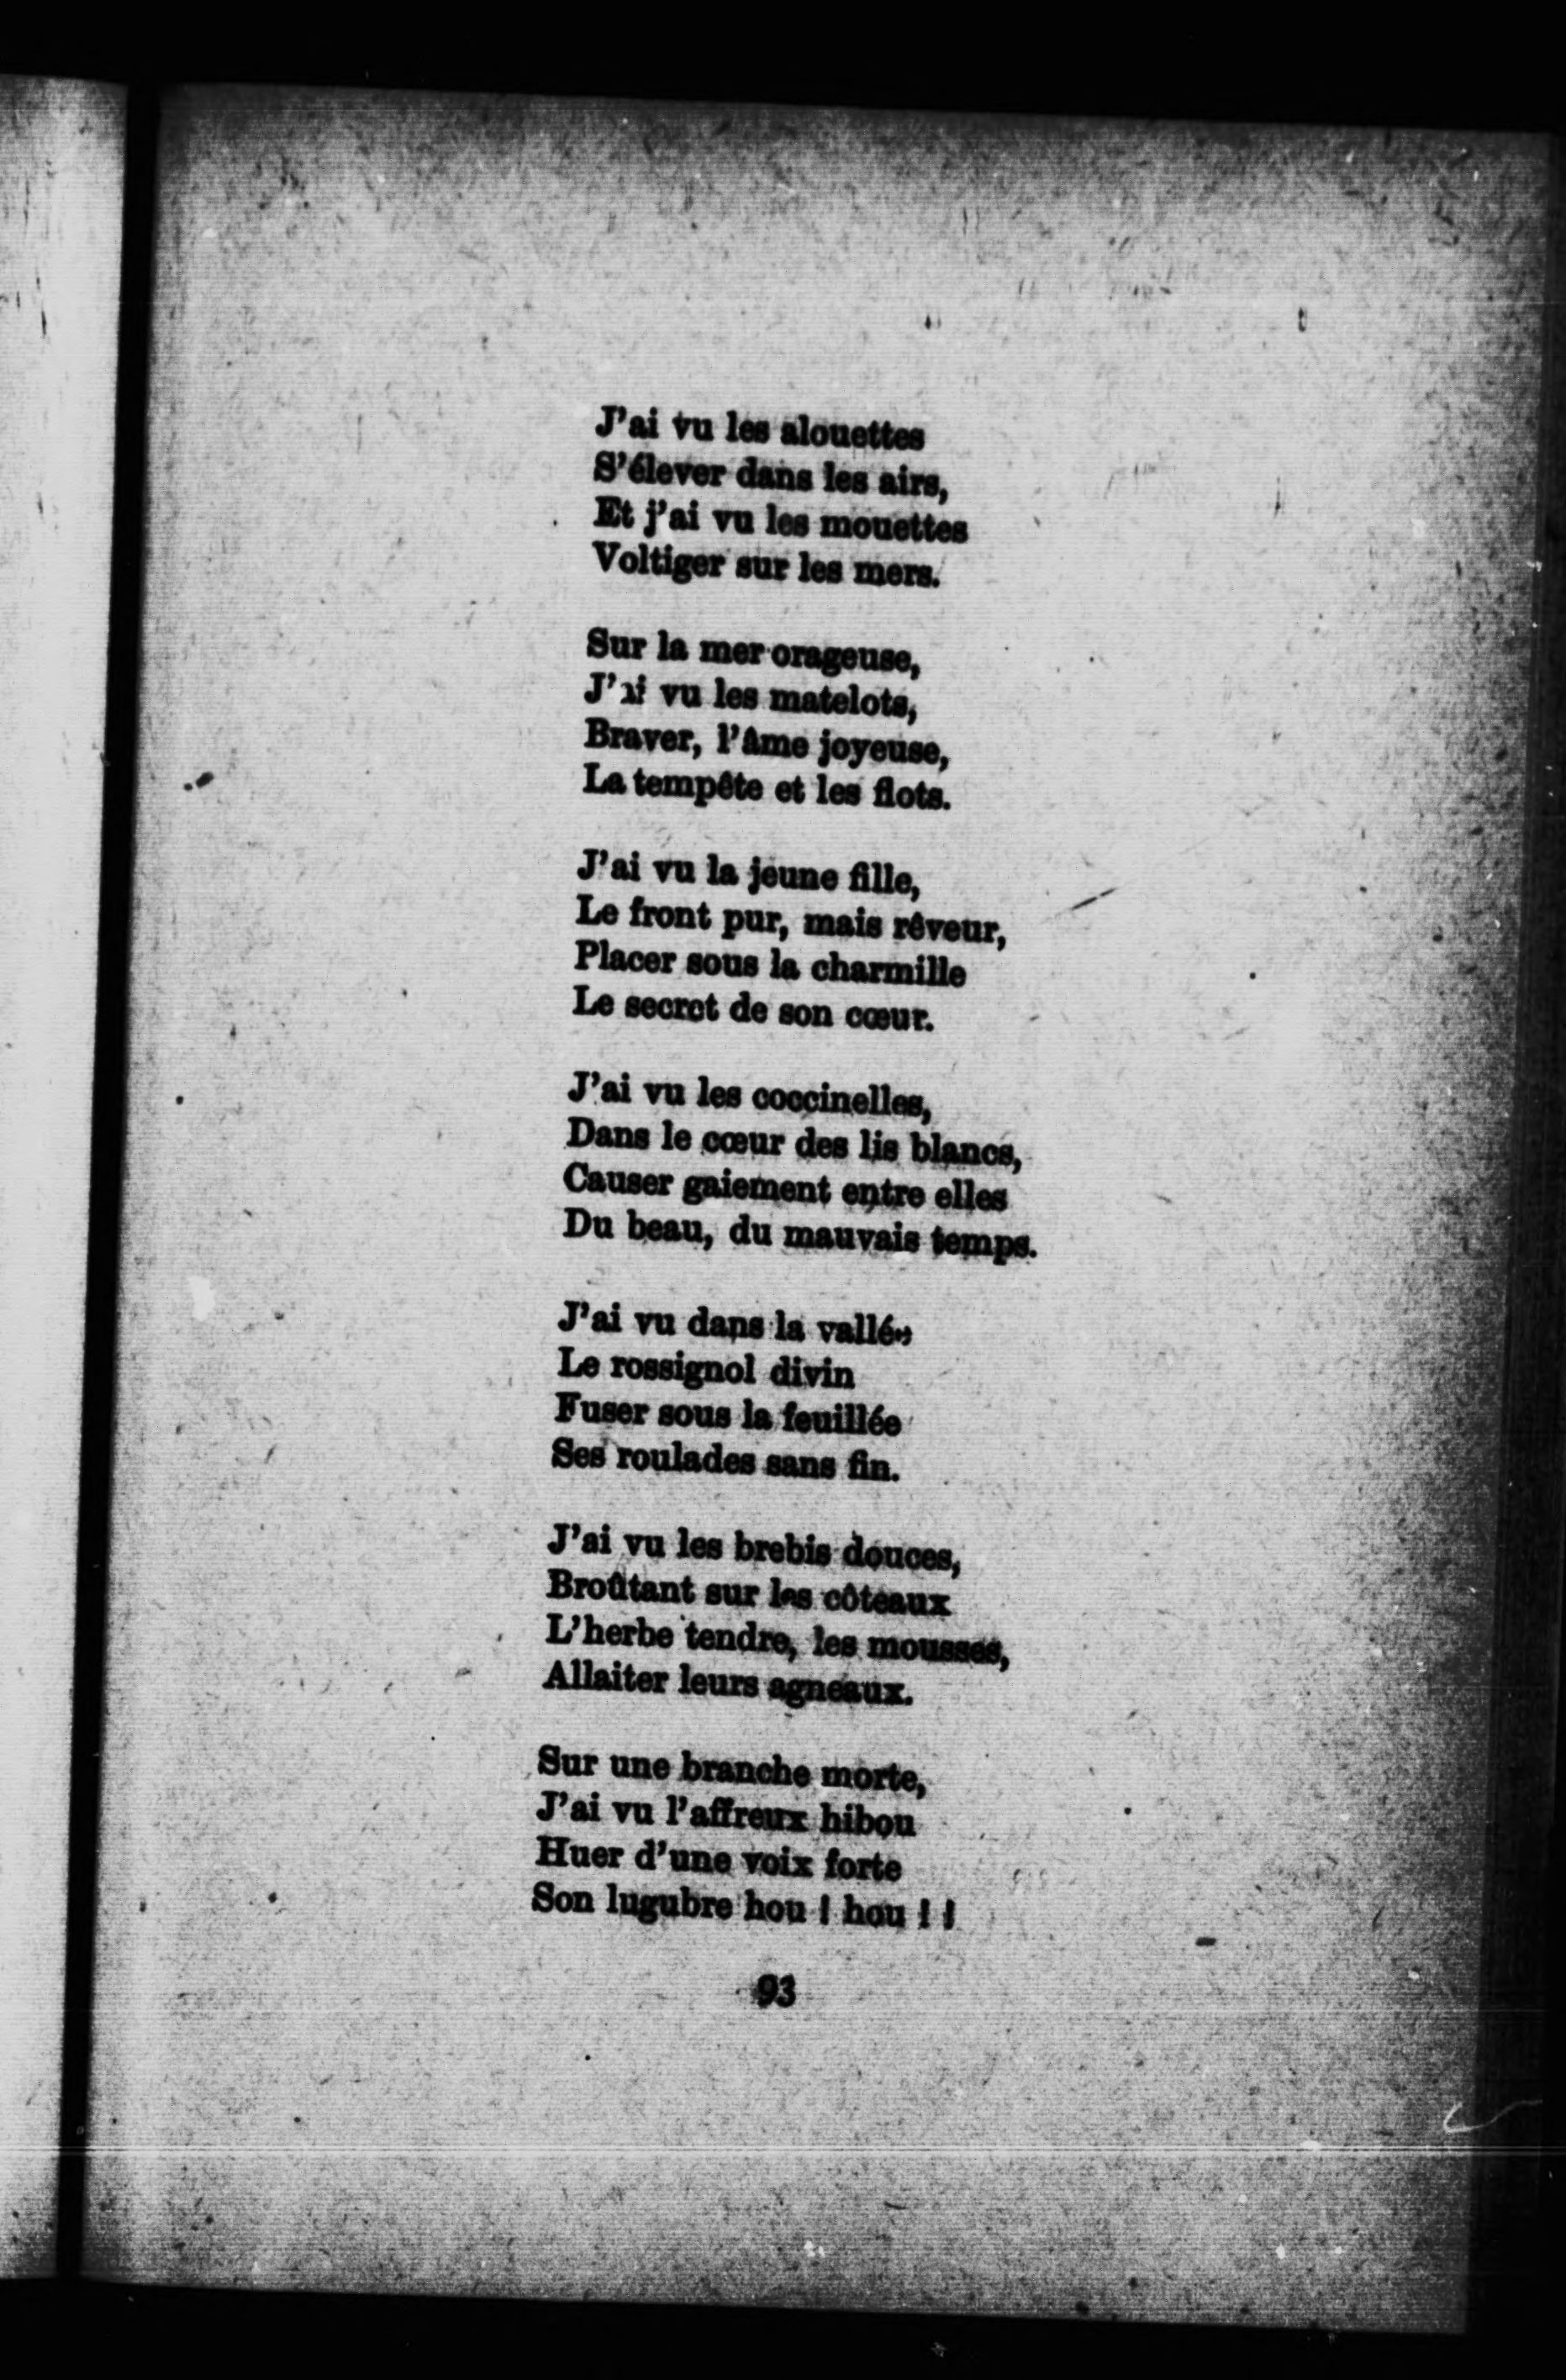 J'ai vu les alouettes
S'élever dans les airs,
Et j'ai vu les mouettes
Voltiger sur les mers.

Sur la mer orageuse,
J'ai vu les matelots,
Braver, l'âme joyeuse,
La tempête et les flots.

J'ai vu la jeune fille,
Le front pur, mais rêveur,
Placer sous la charmille
Le secret de son cœur.

J'ai vu les coccinelles,
Dans le cœur des lis blancs,
Causer gaiement entre elles
Du beau, du mauvais temps.

J'ai vu dans la vallée
Le rossignol divin
Fuser sous la feuillée
Ses roulades sans fin.

J'ai vu les brebis douces,
Broûtant sur les côteaux
L'herbe tendre, les mousses,
Allaiter leurs agneaux.

Sur une branche morte,
J'ai vu l'affreux hibou
Huer d'une voix forte
Son lugubre hou ! hou ! !

93